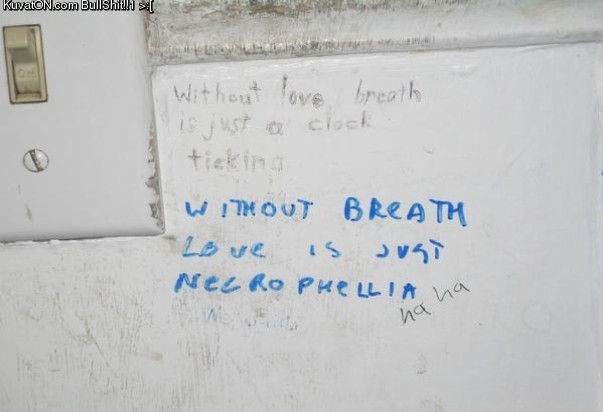 KuvatON.com BullShit!1 >:[
ON
Without love breath
is just a clock
ticking
WITHOUT BREATH
LOVE IS JUST
NECROPHELLIA
ha ha